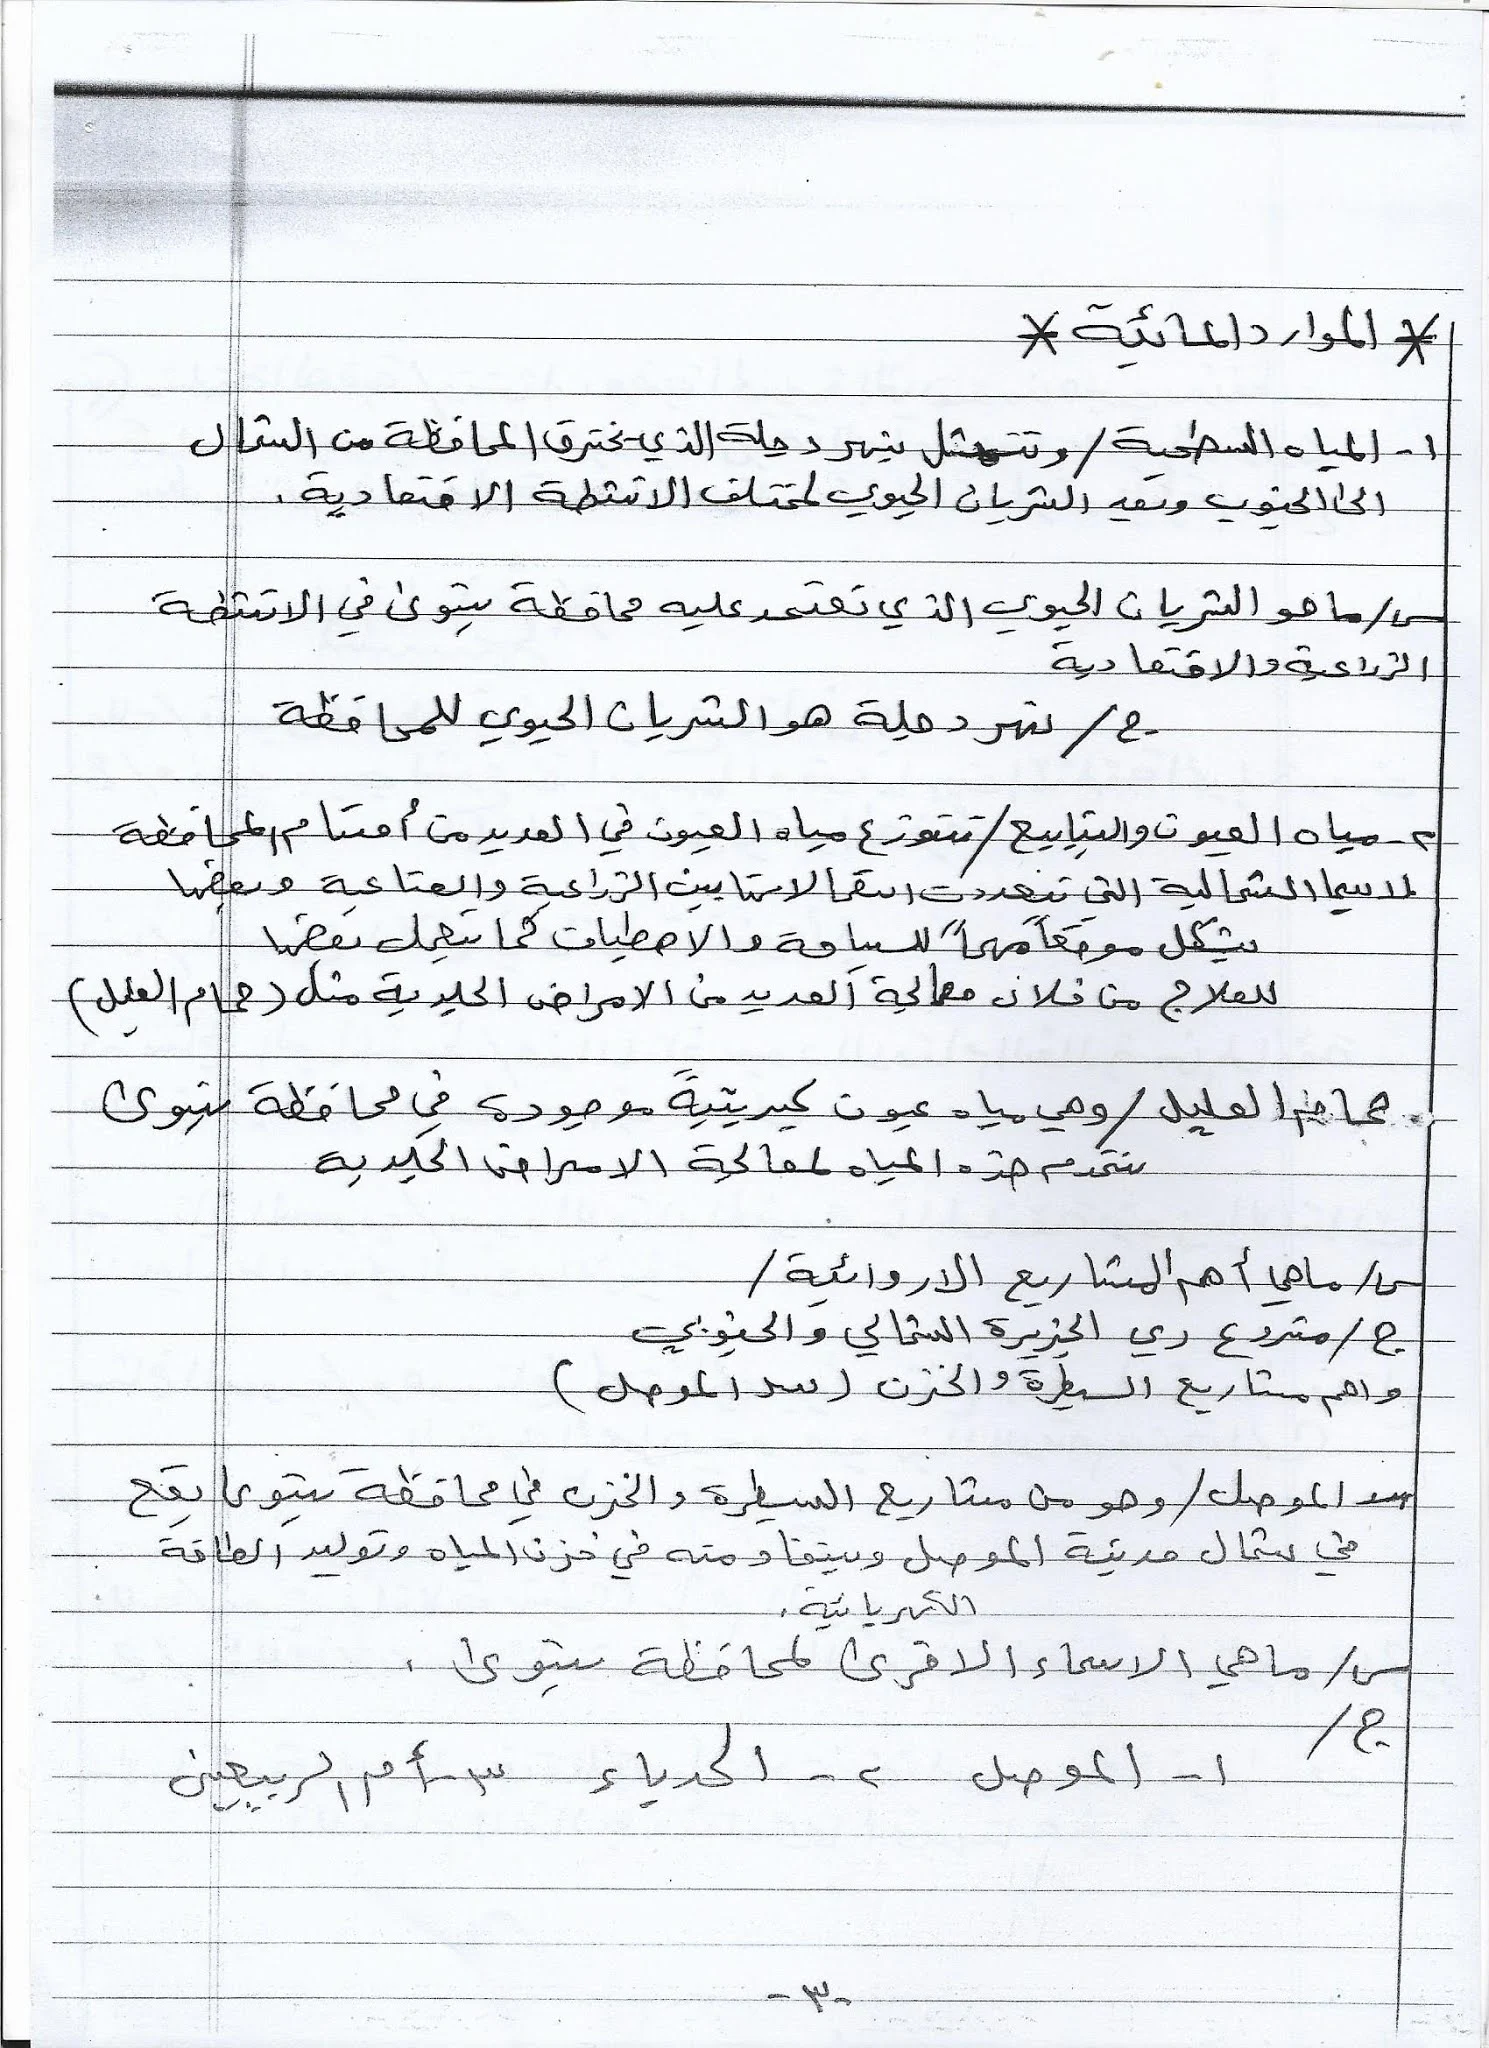 * الموارد المائية *
١- المياه السطحية / وتتمثل بنهر دجلة الذي يخترق المحافظة من الشمال
الى الجنوب ويعد الشريان الحيوي لمختلف الانشطة الاقتصادية .
س/ ما هو الشريان الحيوي الذي تعتمد عليه محافظة نينوى في الانشطة
الزراعية والاقتصادية
ج/ نهر دجلة هو الشريان الحيوي للمحافظة
٢- مياه العيون والينابيع / تتوزع مياه العيون في العديد من أقسام المحافظة
لاسيما الشمالية التي تتعددت استعمالاتها بين الزراعية والصناعية وبعضها
يشكل موقعاً مهماً للسياحة والاصطياف كما يستعمل بعضها
للعلاج من خلال معالجة العديد من الامراض الجلدية مثل (حمام العليل)
حمام العليل / وهي مياه عيون كبريتية موجودة في محافظة نينوى
تستخدم هذه المياه لمعالجة الامراض الجلدية
س/ ماهي أهم المشاريع الاروائية /
ج/ مشروع ري الجزيرة الشمالي والجنوبي
واهم مشاريع السيطرة والخزن (سد الموصل)
سد الموصل / وهو من مشاريع السيطرة والخزن في محافظة نينوى يقع
في شمال مدينة الموصل ويستفاد منه في خزن المياه وتوليد الطاقة
الكهربائية .
س/ ماهي الاسماء الاخرى لمحافظة نينوى .
ج/
١- الموصل ٢- الحدباء ٣- أم الربيعين
-٣-